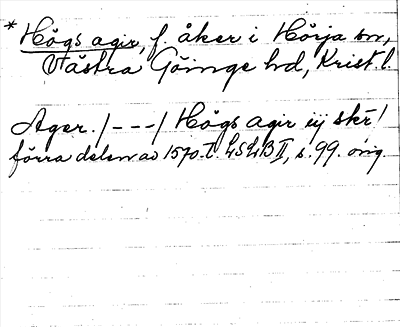 * Högs agir, f. åker i Hörja sn,
Västra Göinge hd, Krist. l.
Ager. /---/ Högs agir iij skr /
förra delen av 1570-t. LSLB II, s. 99. orig.